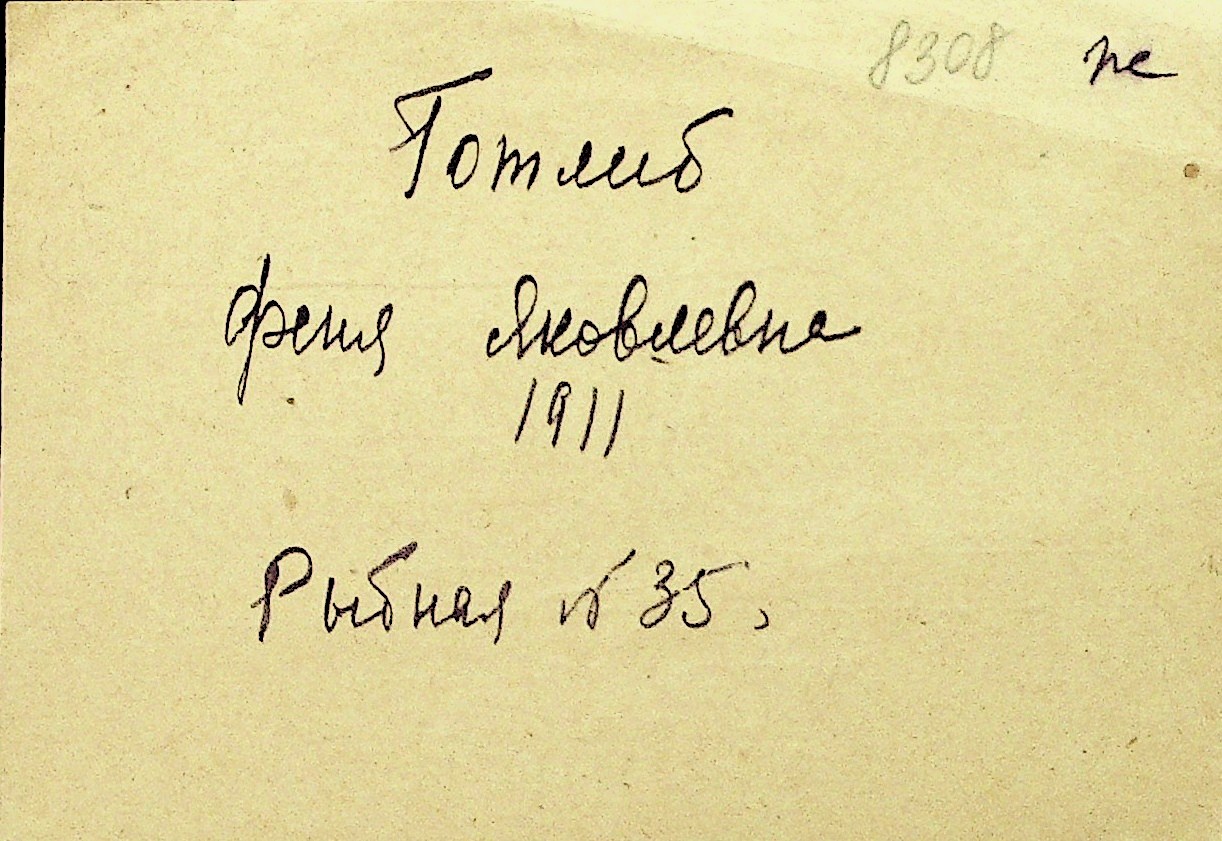 8308 не
Готлиб
Феня Яковлевна
1911
Рыбная № 35,